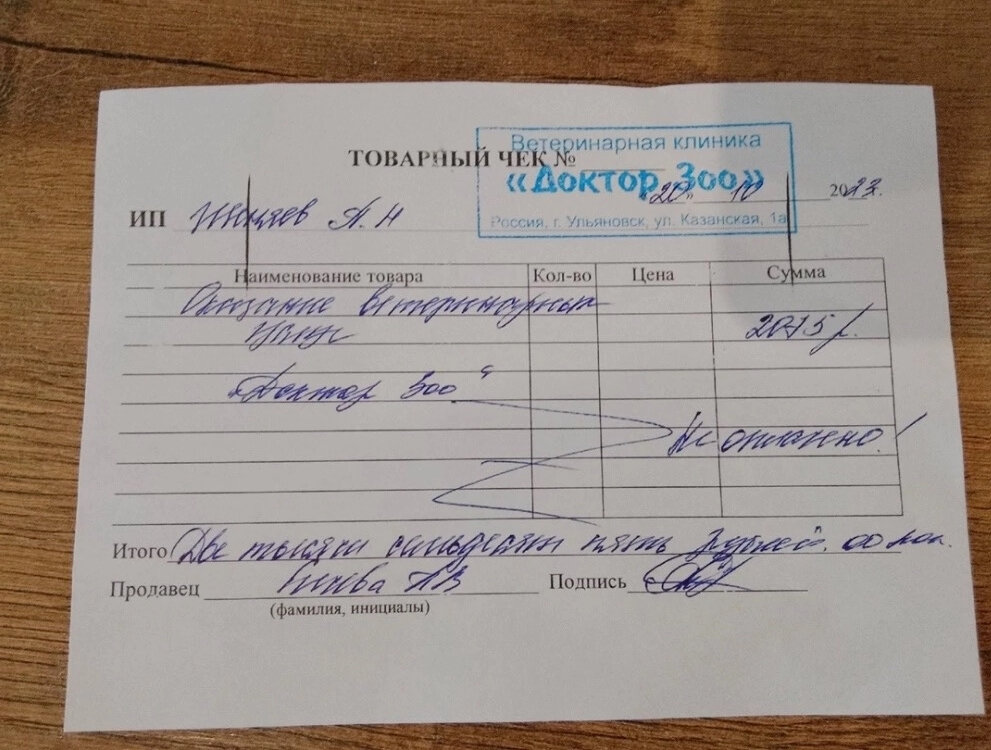 Ветеринарная клиника
ТОВАРНЫЙ ЧЕК №
«Доктор Зоо»
«20» 10 2023г.
Россия, г. Ульяновск, ул. Казанская, 1а
ИП А. Н
Наименование товара Кол-во Цена Сумма
Оказание ветеринарных
услуг 2075 р.
"Доктор Зоо"
Не оплачено!
Итого Две тысячи семьдесят пять рублей. 00 коп.
Продавец АВ Подпись
(фамилия, инициалы)